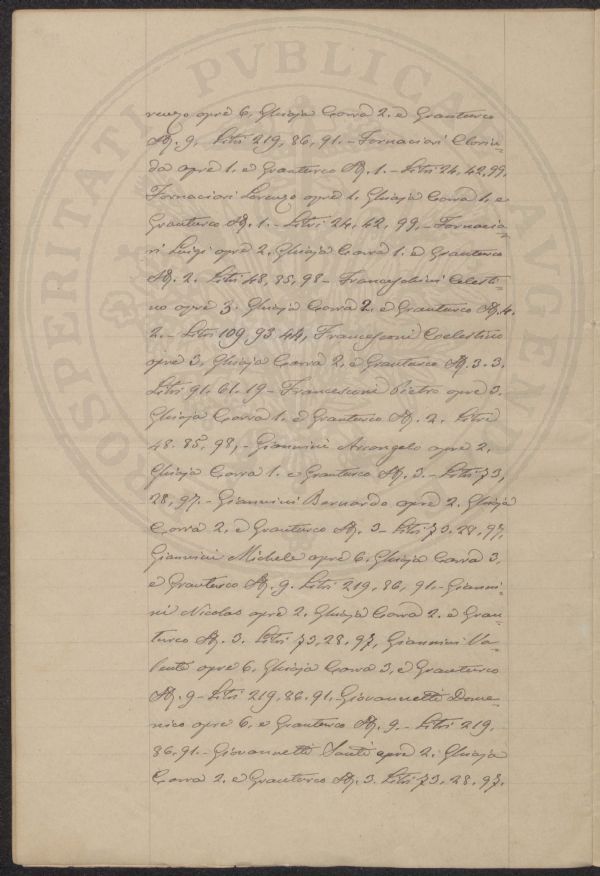 PROSPERITATI PVBLICAE AVGENDAE
renzo opre 6, Ghiaja Carra 2. e Granturco
St. 9, Litri 219, 86, 91. - Fornaciari Clorin-
da opre 1. e Granturco St. 1. - Litri 24, 42, 99,
Fornaciari Lorenzo opre 1, Ghiaja Carra 1. e
Granturco St. 1. - Litri 24, 42, 99, - Fornacia-
ri Luigi opre 2, Ghiaja Carra 1. e Granturco
St. 2. Litri 48, 85, 98 - Franceschini Celesti-
no opre 3. Ghiaja Carra 2. e Granturco St. 4.
2. - Litri 109, 93 44, Francesconi Coelestino
opre 3, Ghiaja Carra 2, e Granturco St. 3. 3.
Litri 91. 61. 19 - Francesconi Pietro opre 3.
Ghiaja Carra 1. e Granturco St. 2. Litri
48. 85, 98, - Giannini Arcangelo opre 2,
Ghiaja Carra 1. e Granturco St. 3. - Litri 73,
28, 97. - Giannini Bernardo opre 2. Ghiaja
Carra 2. e Granturco St. 3 - Litri 73. 28. 97,
Giannini Michele opre 6, Ghiaja Carra 3,
e Granturco St. 9. Litri 219, 86, 91. - Gianni-
ni Nicolao opre 2. Ghiaja Carra 2. e Gran-
turco St. 3. Litri 73, 28. 97, Giannini Va-
lente opre 6, Ghiaja Carra 3, e Granturco
St. 9 - Litri 219. 86. 91. Giovannetti Dome-
nico opre 6, e Granturco St. 9. - Litri 219,
86. 91. - Giovannetti Santi opre 2, Ghiaja
Carra 2. e Granturco St. 3. Litri 73, 28. 97.